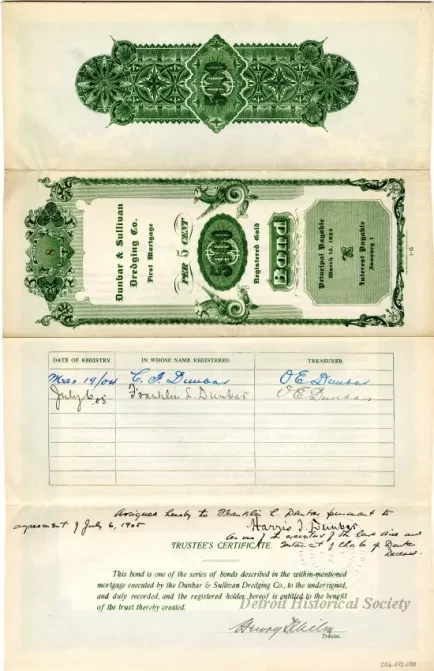 5000
8
Dunbar & Sullivan
Dredging Co.
First Mortgage
PER 5 CENT
5000
Registered Gold
Bond
Principal Payable
March 15, 1924
Interest Payable
January 1
DATE OF REGISTRY
IN WHOSE NAME REGISTERED
TREASURER
Mar 19/04 C. F. Dunbar O E Dunbar
July 6 05 Franklin L Dunbar O E Dunbar
Assigned hereby to Franklin L Dunbar pursuant to
agreement of July 6, 1905
Harris T. Dunbar
as one of the executors of the Last Will and
Testament of Charles F Dunbar
Deceased.
TRUSTEE'S CERTIFICATE.
This bond is one of the series of bonds described in the within-mentioned
mortgage executed by the Dunbar & Sullivan Dredging Co., to the undersigned,
and duly recorded, and the registered holder hereof is entitled to the benefit
of the trust thereby created.
Detroit Historical Society
Henry
Trustee.